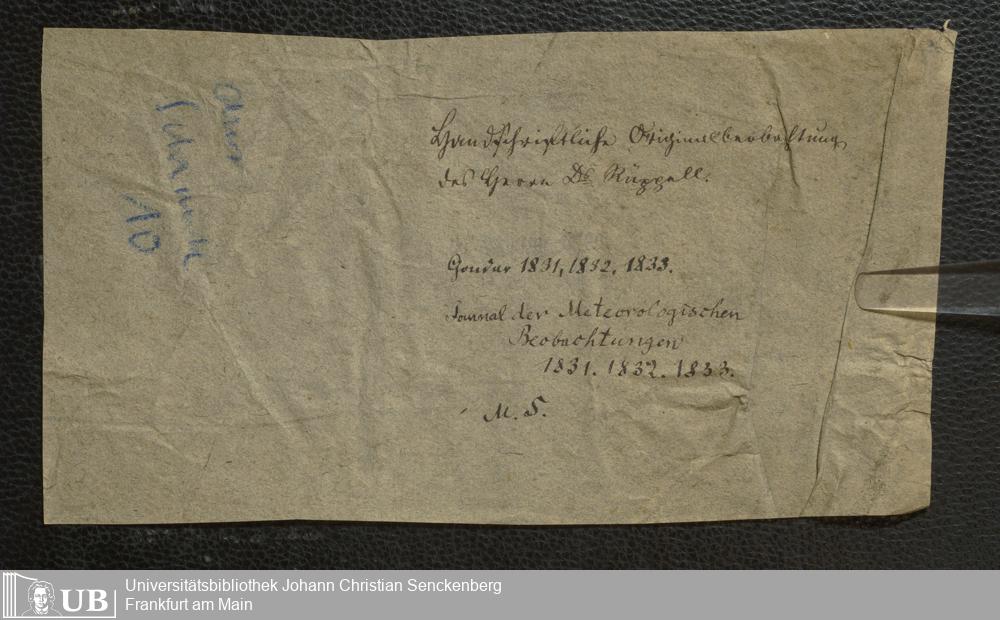 Handschriftliche Originalbeobachtung
des Herrn Dr Rüppell.
Gondar 1831, 1832, 1833.
Journal der Meteorologischen
Beobachtungen
1831. 1832. 1833.
M. S.
10
UB
Universitätsbibliothek Johann Christian Senckenberg
Frankfurt am Main